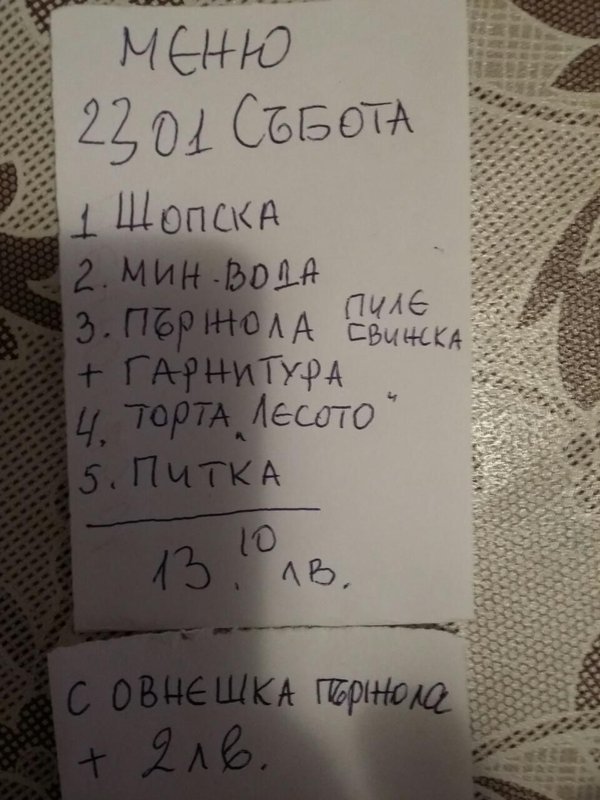 МЕНЮ
23 01 СЪБОТА
1 ШОПСКА
2. МИН. ВОДА
3. ПЪРЖОЛА ПИЛЕ СВИНСКА
+ ГАРНИТУРА
4. ТОРТА „ЛЕСОТО“
5. ПИТКА
13.10 лв.
С ОВНЕШКА ПЪРЖОЛА
+ 2 лв.